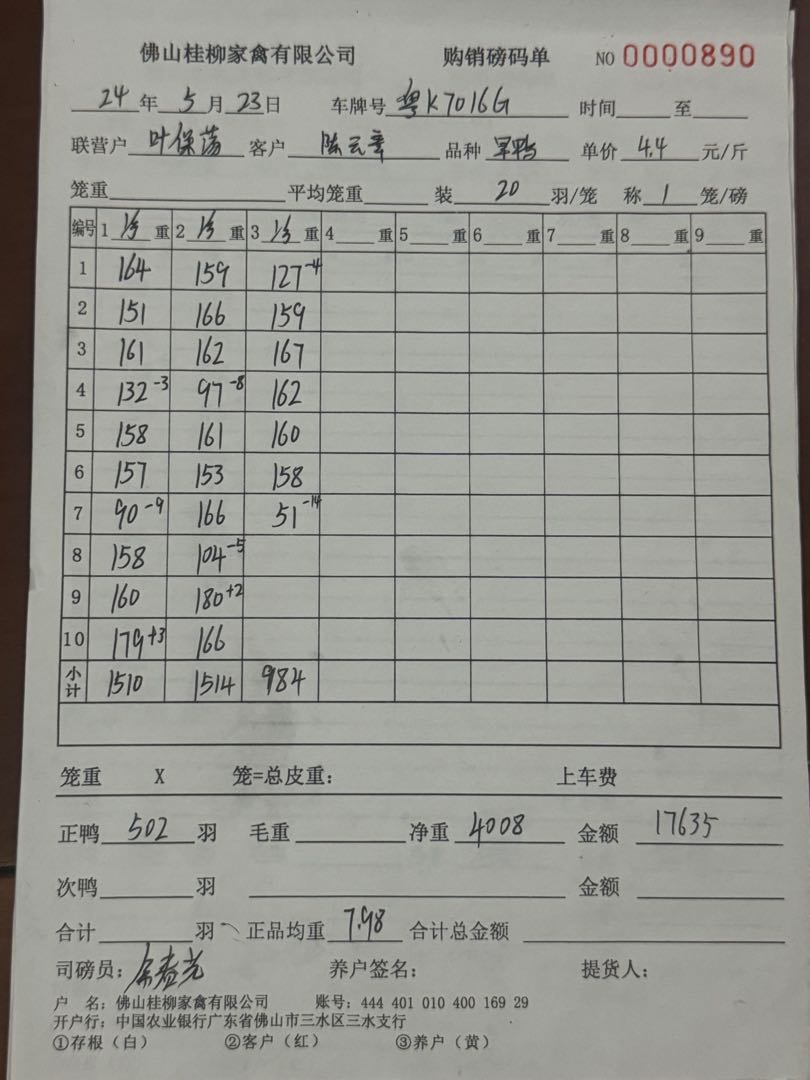 佛山桂柳家禽有限公司 购销磅码单 NO 0000890
24 年 5 月 23 日 车牌号 粤K7016G 时间 至
联营户 叶保荡 客户 陈云章 品种 旱鸭 单价 4.4 元/斤
笼重 平均笼重 装 20 羽/笼 称 1 笼/磅
编号 1 重 2 重 3 重 4 重 5 重 6 重 7 重 8 重 9 重
1 164 159 127-4
2 151 166 159
3 161 162 167
4 132-3 97-8 162
5 158 161 160
6 157 153 158
7 90-9 166 51-14
8 158 104-5
9 160 180+2
10 179+3 166
小计 1510 1514 984
笼重 X 笼=总皮重： 上车费
正鸭 502 羽 毛重 净重 4008 金额 17635
次鸭 羽 金额
合计 羽 正品均重 7.98 合计总金额
司磅员： 养户签名： 提货人：
户 名：佛山桂柳家禽有限公司 账号：444 401 010 400 169 29
开户行：中国农业银行广东省佛山市三水区三水支行
①存根（白） ②客户（红） ③养户（黄）